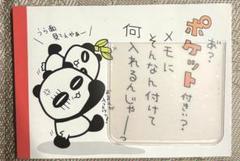 あっ
ポケット付き!?
メモに
そんなん付けて
何入れるんじゃーっ
うら面
見てんやぁー